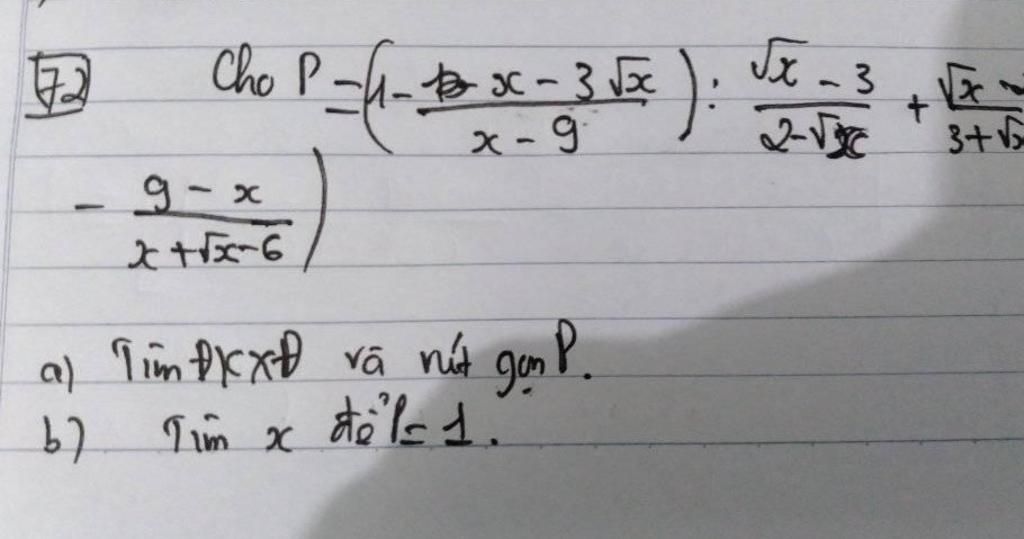 72 Cho P = (1 - (x - 3√x)/(x - 9)) : (√x - 3)/(2 - √x) + (√x -)/(3 + √x)
- (9 - x)/(x + √x - 6))
a) Tìm ĐKXĐ và rút gọn P.
b) Tìm x để P = 1.